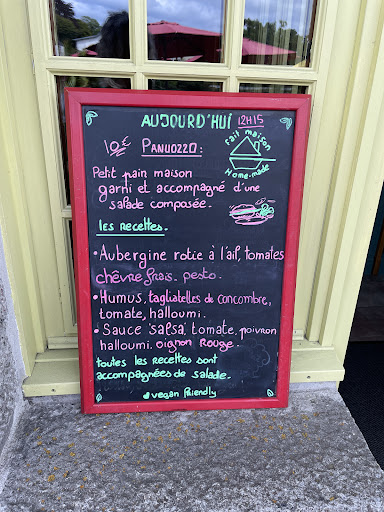 AUJOURD'HUI 12H15
fait maison
Home-made
10€ PANUOZZO:
Petit pain maison
garni et accompagné d'une
salade composée.
les recettes.
• Aubergine rotie à l'ail, tomates
chèvre frais. pesto.
• Humus, tagliatelles de concombre,
tomate, halloumi.
• Sauce 'salsa' tomate, poivron
halloumi. oignon Rouge.
toutes les recettes sont
accompagnées de salade.
vegan friendly